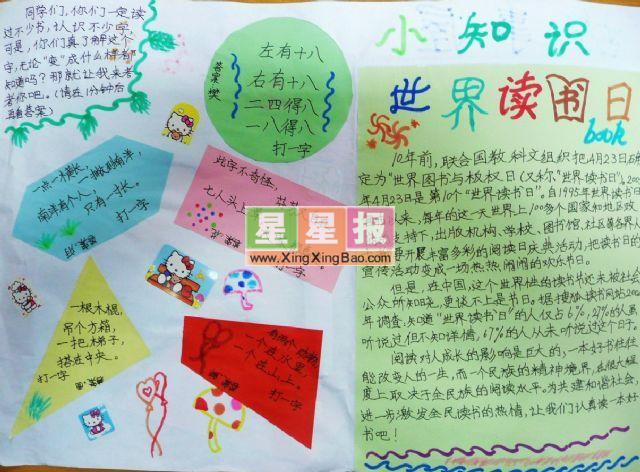 同学们,你们一定读
过不少书,认识不少字
可是,你们真了解这个
字,无论“变”成什么样都
知道吗?那就让我来考
考你吧。(请在1分钟后
再看答案)
左有十八
右有十八
二四得八
一八得八
打一字
答案:樊
一点一横长,
二撇到南洋,
南洋有个人,
只有一寸长。
打一字
此字不奇怪,
七人头上
打一字
一根木棍,
吊个方箱,
一把梯子,
搭在中央。
打一字
有两个动物,
一个在水里,
一个在山上。
打一字
星星报
www.XingXingBao.com
小知识
世界读书日
book
10年前,联合国教科文组织把4月23日确
定为“世界图书与版权日(又称“世界读书日”)。200
年4月23日是第10个“世界读书日”。自1995年世界读书日
以来,每年的这一天世界上100多个国家和地区政
支持下,出版机构、学校、图书馆、社区等各界人
开展丰富多彩的阅读日庆典活动,把读书日的
宣传活动变成一场热热闹闹的欢乐节日。
但是,在中国,这个世界性的读书节还未被社会
公众所知晓,更谈不上是节日。据搜狐读书网站200
年调查:知道“世界读书日”的人仅占6%,27%的人虽
听说过但不知详情,67%的人从未听说过这个日子。
阅读对人成长的影响是巨大的,一本好书往往
能改变人的一生,而一个民族的精神境界,在很大程
度上取决于全民族的阅读水平。为共建和谐社会,
进一步激发全民读书的热情,让我们认真读一本好
书吧!